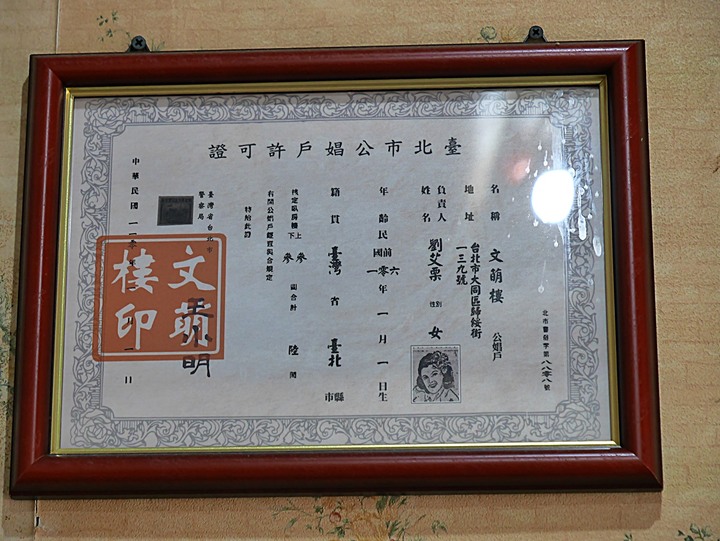 臺北市公娼戶許可證
北市警娼字第八八零八號
名稱 文萌樓 公娼戶
地址 台北市大同區歸綏街
一三九號
負責人姓名 劉艾栗 性別 女
年齡 民國前一零六年一月一日生
籍貫 臺灣省臺北縣市
核定臥房樓上下參參間合計陸間
有關公娼戶經查與合規定
特給此證
臺灣省台北市
警察局
明
中華民國一一零年 月一日
文萌樓印